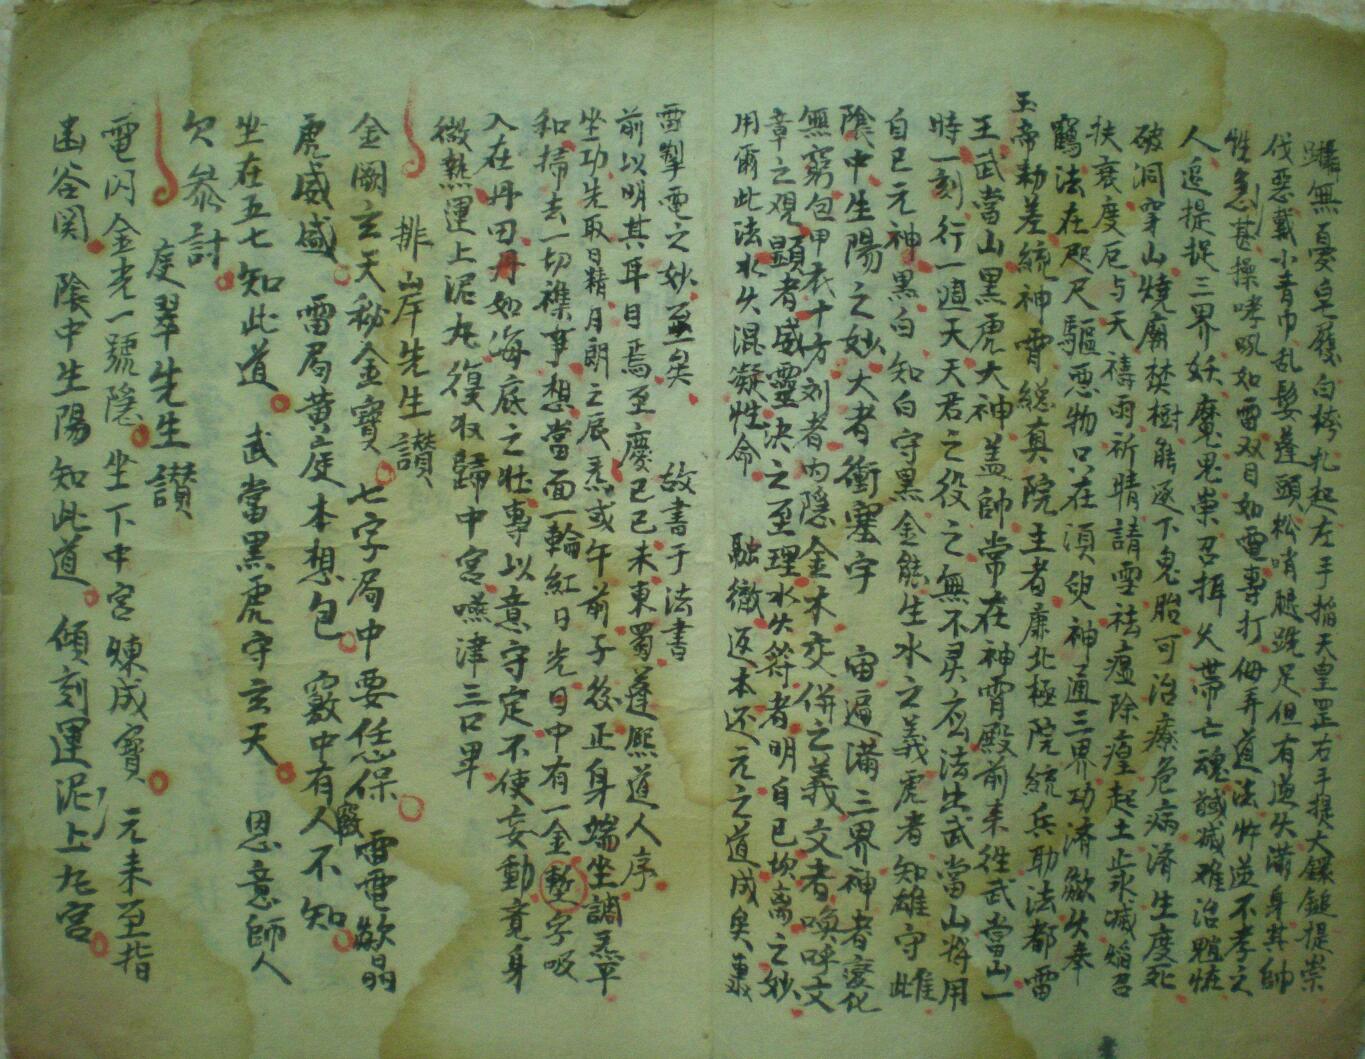 無憂皂履白袴扎起左手搯天皇罡右手提大鐶鎚提崇
伐惡戴小青巾乱髮蓬頭松哨腿跣足但有退火滿身其帥
性急甚操哮吼如雷双目如電專打侮弄道法忤逆不孝之
人追提捉三界妖魔鬼祟召揖火帶亡魂馘滅难治魈怪
破洞穿山燒廟焚樹能逐下鬼胎可治療危病濟生度死
扶衰度厄与天禱雨祈晴請雪祛瘟除瘴起土氶滅焰召
鶴法在咫尺驅惡物只在須臾神通三界功濟歘火奉
玉帝勅差統神霄総真院主者廉北極院統兵助法都雷
王武當山黑虎大神盖帥常在神霄殿前来徃武當山一
時一刻行一週天天君之役之無不灵应法出武當山將用
自已元神黑白知白守黑金能生水之義虎者知雄守雌
陰中生陽之妙大者衝塞宇宙遍滿三界神者变化
無窮包甲衣十方刘者内隱金木交併之義文者喚呼文
章之观顕者感靈决之至理水火符者明自已坎离之妙
用爾此法水火混凝性命融徹返本还元之道成矣裏
雷掣電之妙至矣 故書于法書
前以明其耳目焉至慶已已未東蜀蓬熙道人序
坐功先取日精月朗之辰炁或午前子後正身端坐調炁平
和掃去一切襍事想當面一輪紅日光日中有一金蟿字吸
入在丹田丹如海底之壮專以意守定不使妄動竟身
微熱運上泥丸復收歸中宮嚥津三口畢
排岸先生讃
金闕玄天秘金寶 七字局中要任保 雷電歘晶
虎威盛 雷局黄庭本想包 竅中有人不知
坐在五七知此道 武當黑虎守玄天 恩意師人
欠參討
庭翠先生讃
電閃金光一號隐 坐下中宮煉成寶 元未至指
幽谷関 陰中生陽知此道 傾刻運泥上九宮